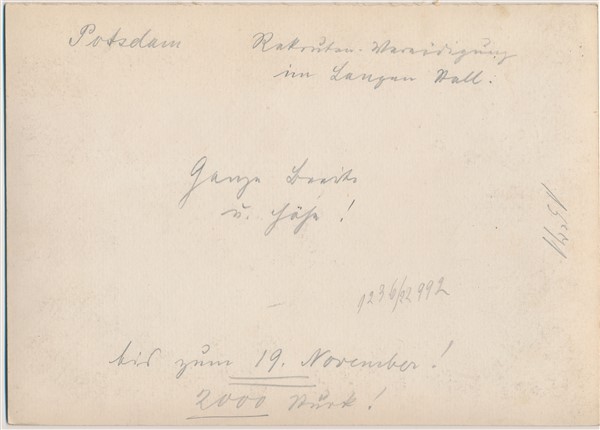 Potsdam
Rekruten-Vereidigung
im Langen Stall.
Ganze Breite
u. Höhe!
1236/22992
bis zum 19. November!
2000 Stück!